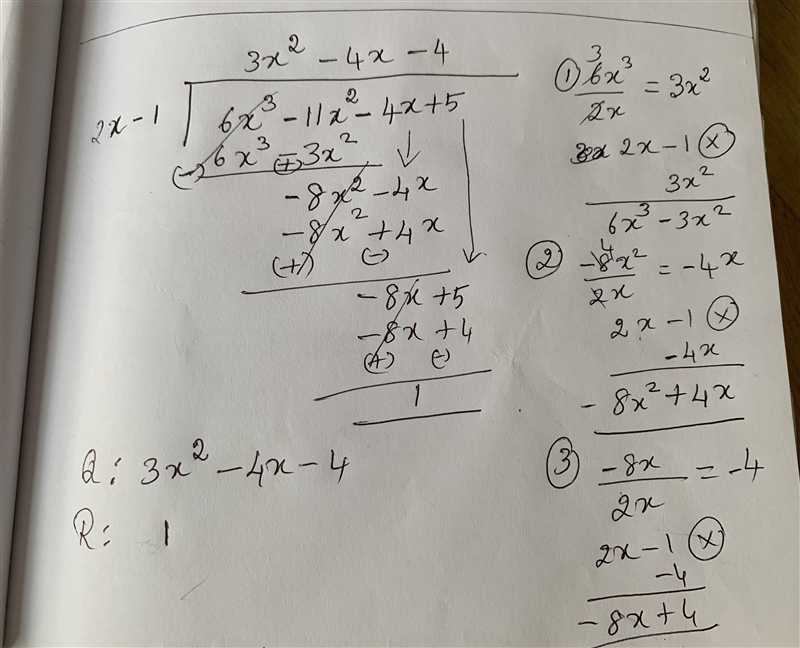 3x² - 4x - 4
2x - 1 6x³ - 11x² - 4x + 5
6x³ - 3x²
(-) (+)
-8x² - 4x
-8x² + 4x
(+) (-)
-8x + 5
-8x + 4
(+) (-)
1
Q: 3x² - 4x - 4
R: 1
① 3
6x³ = 3x²
2x
2x - 1 ⓧ
3x²
6x³ - 3x²
② 4
-8x² = -4x
2x
2x - 1 ⓧ
-4x
-8x² + 4x
③ -8x = -4
2x
2x - 1 ⓧ
-4
-8x + 4